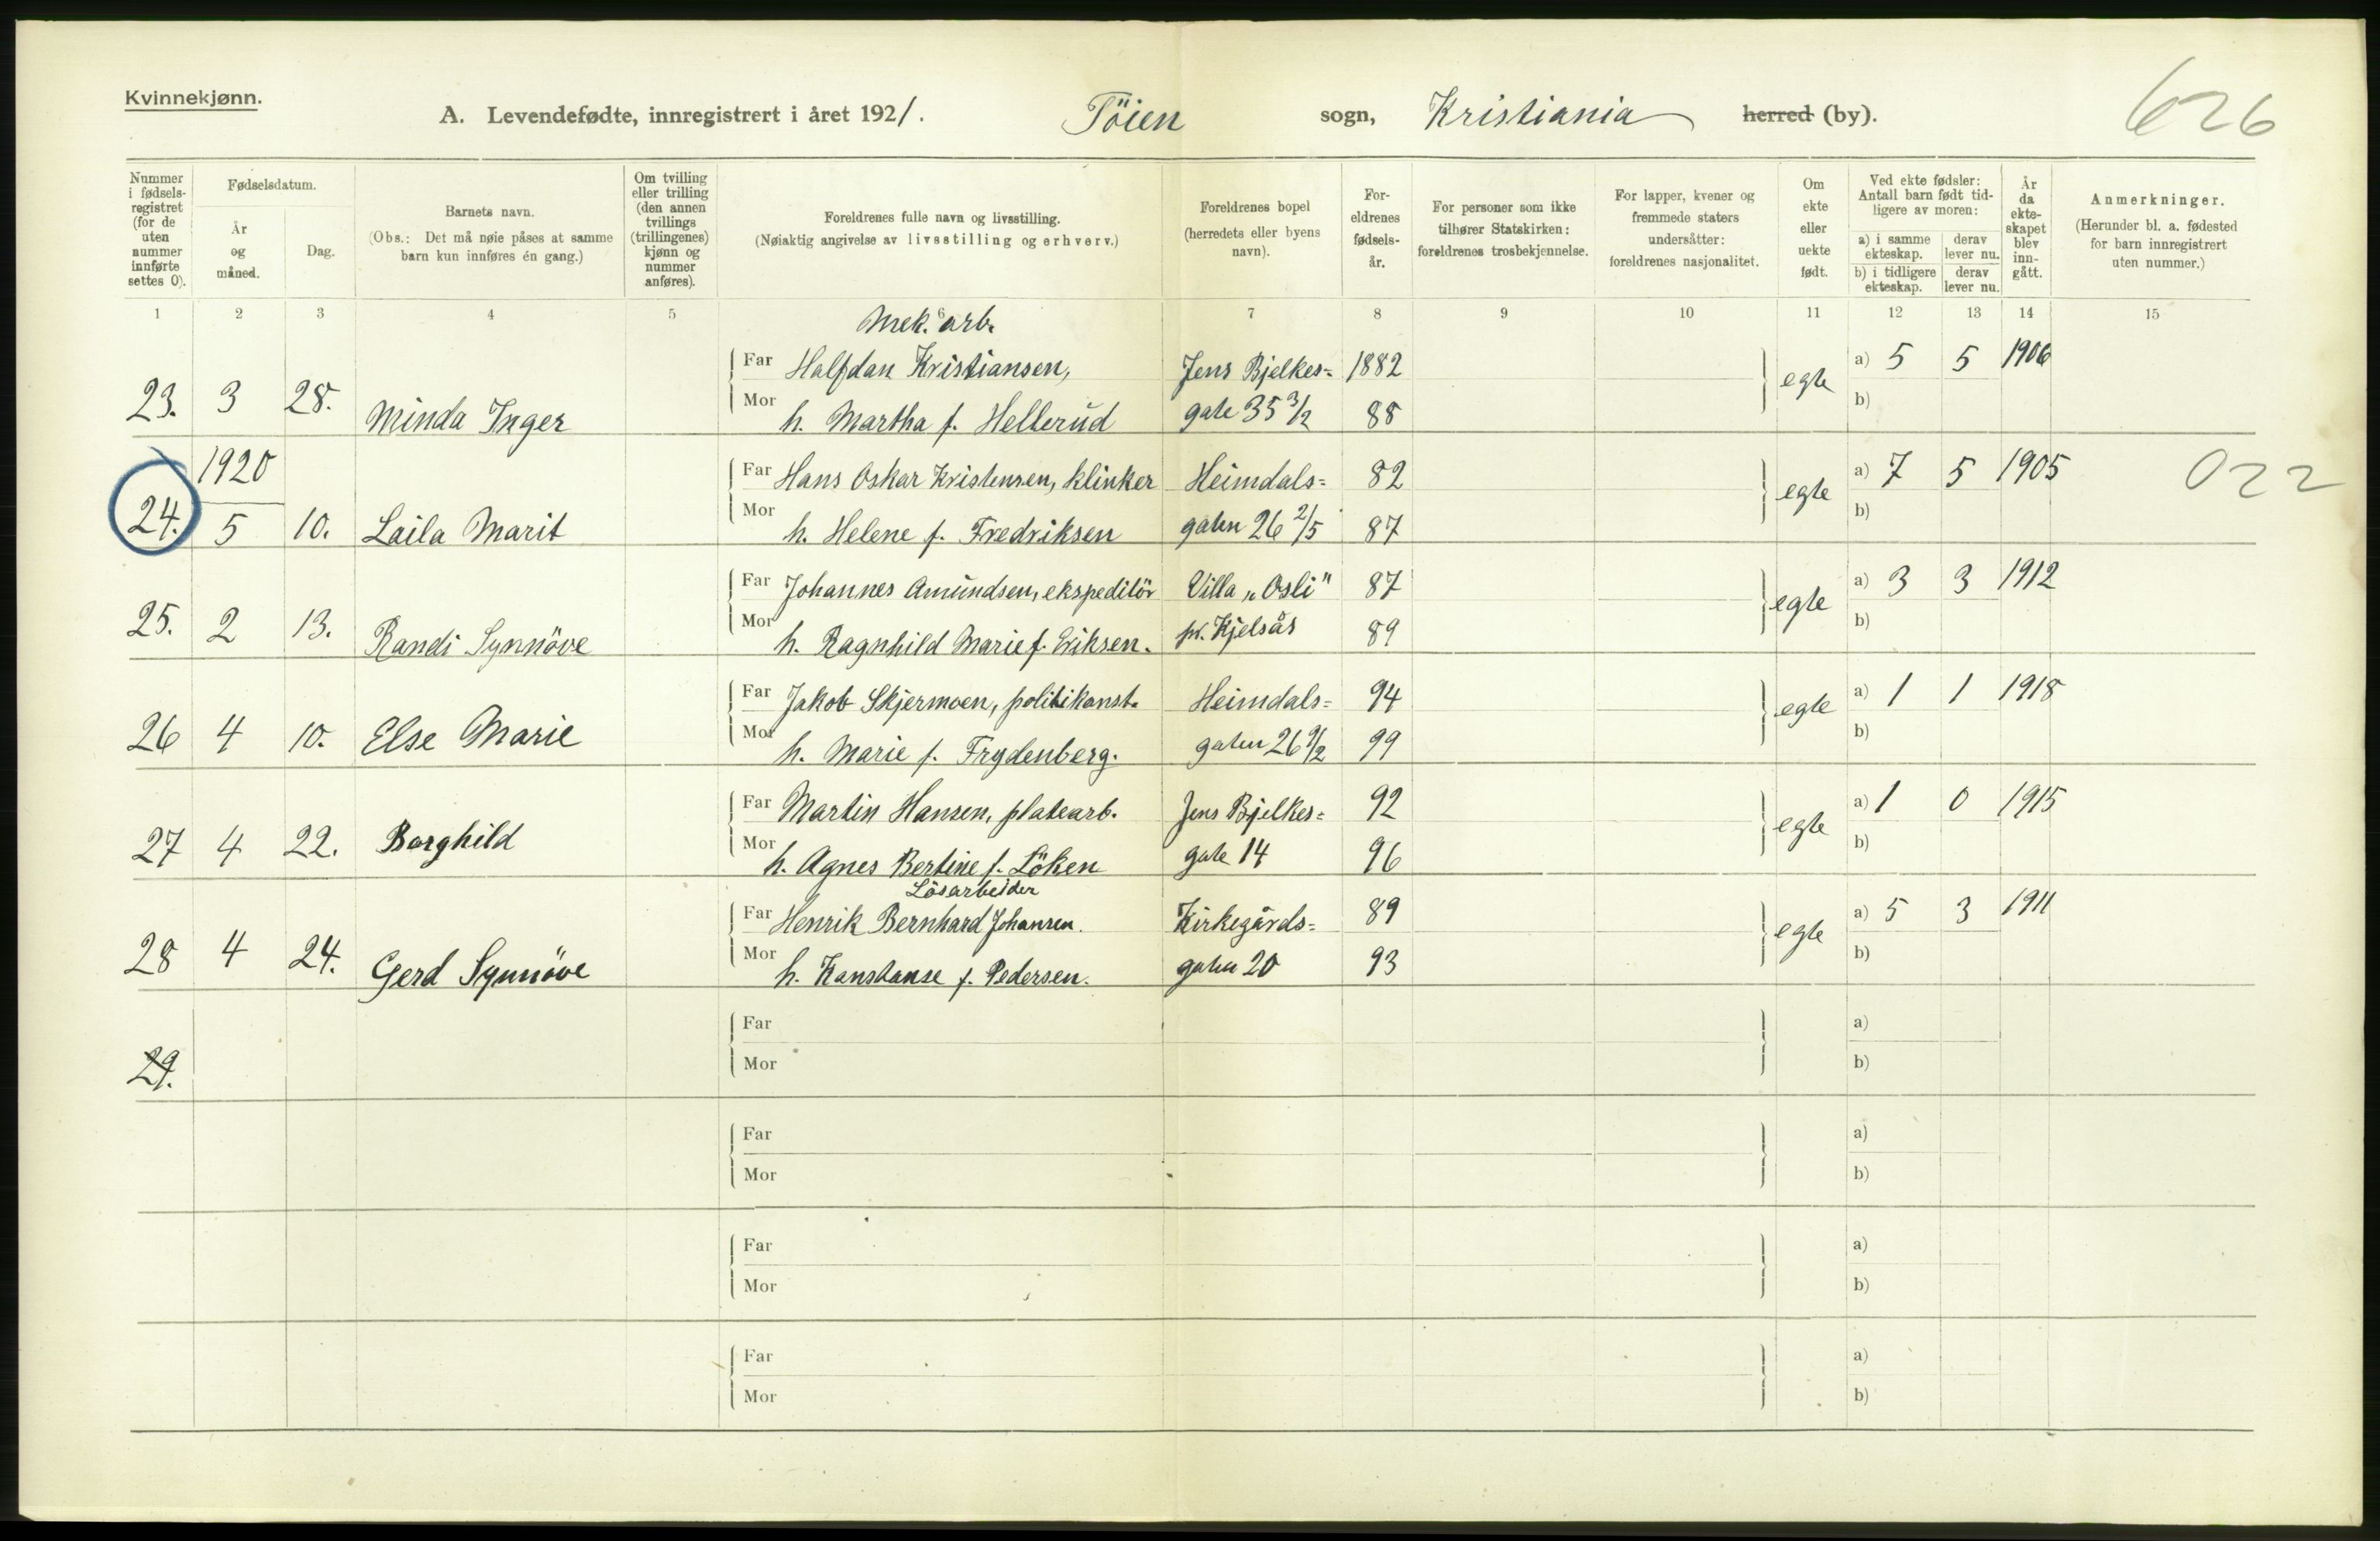 Kvinnekjønn.
626
A. Levendefødte, innregistrert i året 1921. Töien sogn, Kristiania herred (by).
Nummer i fødsels-registret (for de uten nummer innførte settes 0).
Fødselsdatum.
År og måned.
Dag.
Barnets navn.
(Obs.: Det må nøie påses at samme barn kun innføres én gang.)
Om tvilling eller trilling (den annen tvillings (trillingenes) kjønn og nummer anføres).
Foreldrenes fulle navn og livsstilling.
(Nøiaktig angivelse av livsstilling og erhverv.)
Foreldrenes bopel (herredets eller byens navn).
For-eldrenes fødsels-år.
For personer som ikke tilhører Statskirken: foreldrenes trosbekjennelse.
For lapper, kvener og fremmede staters undersåtter: foreldrenes nasjonalitet.
Om ekte eller uekte født.
Ved ekte fødsler: Antall barn født tid-ligere av moren:
a) i samme ekteskap. derav lever nu.
b) i tidligere ekteskap. derav lever nu.
År da ekte-skapet blev inn-gått.
Anmerkninger.
(Herunder bl. a. fødested for barn innregistrert uten nummer.)
1 2 3 4 5 6 7 8 9 10 11 12 13 14 15
Mek. arb.
Far Halfdan Kristiansen, Jens Bjelkes= 1882 a) 5 5 1906
23. 3 28. Minda Inger Mor h. Martha f. Hellerud gate 35 3/2 88 egte b)
1920 Far Hans Oskar Kristensen, klinker Heimdals= 82 a) 7 5 1905 022
24. 5 10. Laila Marit Mor h. Helene f. Fredriksen gaten 26 2/5 87 egte b)
Far Johannes Amundsen, ekspeditör Villa „Osli" 87 a) 3 3 1912
25. 2 13. Randi Synnöve Mor h. Ragnhild Marie f. Eriksen. pr. Kjelsås 89 egte b)
Far Jakob Skjermoen, politikonst. Heimdals= 94 a) 1 1 1918
26 4 10. Else Marie Mor h. Marie f. Frydenberg. gaten 26 99 egte b)
Far Martin Hansen, platearb. Jens Bjelkes= 92 a) 1 0 1915
27 4 22. Borghild Mor h. Agnes Bertine f. Löken gate 14 96 egte b)
Lösarbeider
Far Henrik Bernhard Johansen. Kirkegårds= 89 a) 5 3 1911
28 4 24. Gerd Synnöve Mor h. Konstanse f. Pedersen. gaten 20 93 egte b)
Far a)
29. Mor b)
Far a)
Mor b)
Far a)
Mor b)
Far a)
Mor b)